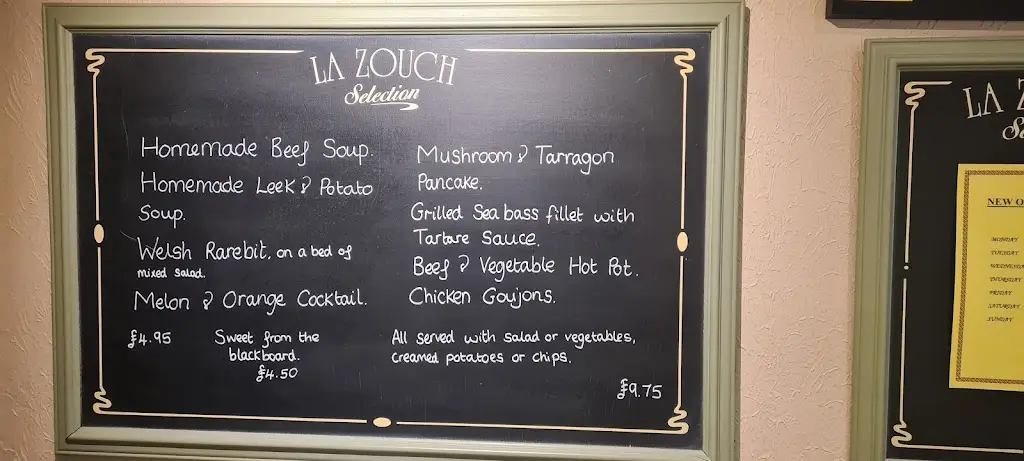 LA ZOUCH
Selection
Homemade Beef Soup.
Homemade Leek & Potato
Soup.
Welsh Rarebit, on a bed of
mixed salad.
Melon & Orange Cocktail.
£4.95
Sweet from the
blackboard.
£4.50
Mushroom & Tarragon
Pancake.
Grilled Seabass fillet with
Tartare Sauce.
Beef & Vegetable Hot Pot.
Chicken Goujons.
All served with salad or vegetables,
creamed potatoes or chips.
£9.75
LA
NEW O
MONDAY
TUESDAY
WEDNESDA
THURSDAY
FRIDAY
SATURDAY
SUNDAY